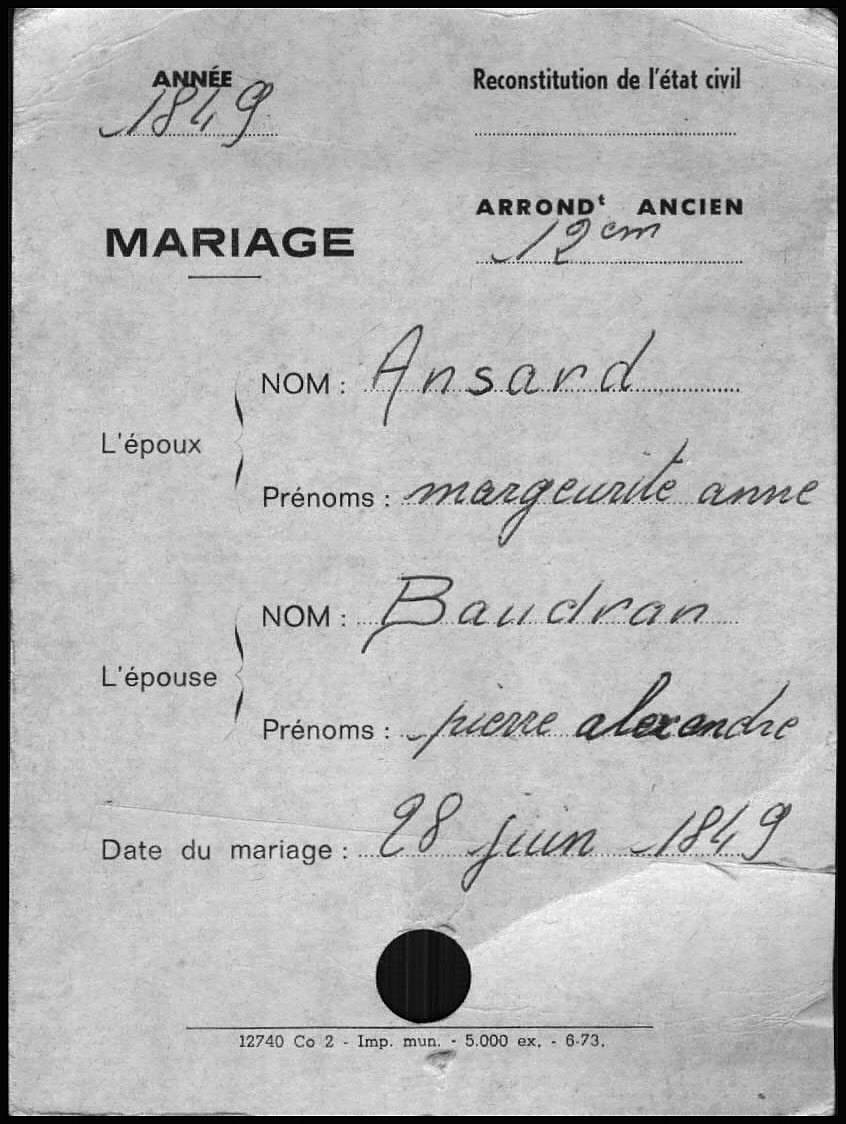 ANNÉE
1849
Reconstitution de l'état civil
ARRONDᵗ ANCIEN
12em
MARIAGE
L'époux
NOM : Ansard
Prénoms : margeurite anne
L'épouse
NOM : Baudran
Prénoms : pierre alexandre
Date du mariage : 28 juin 1849
12740 Co 2 - Imp. mun. - 5.000 ex. - 6-73.